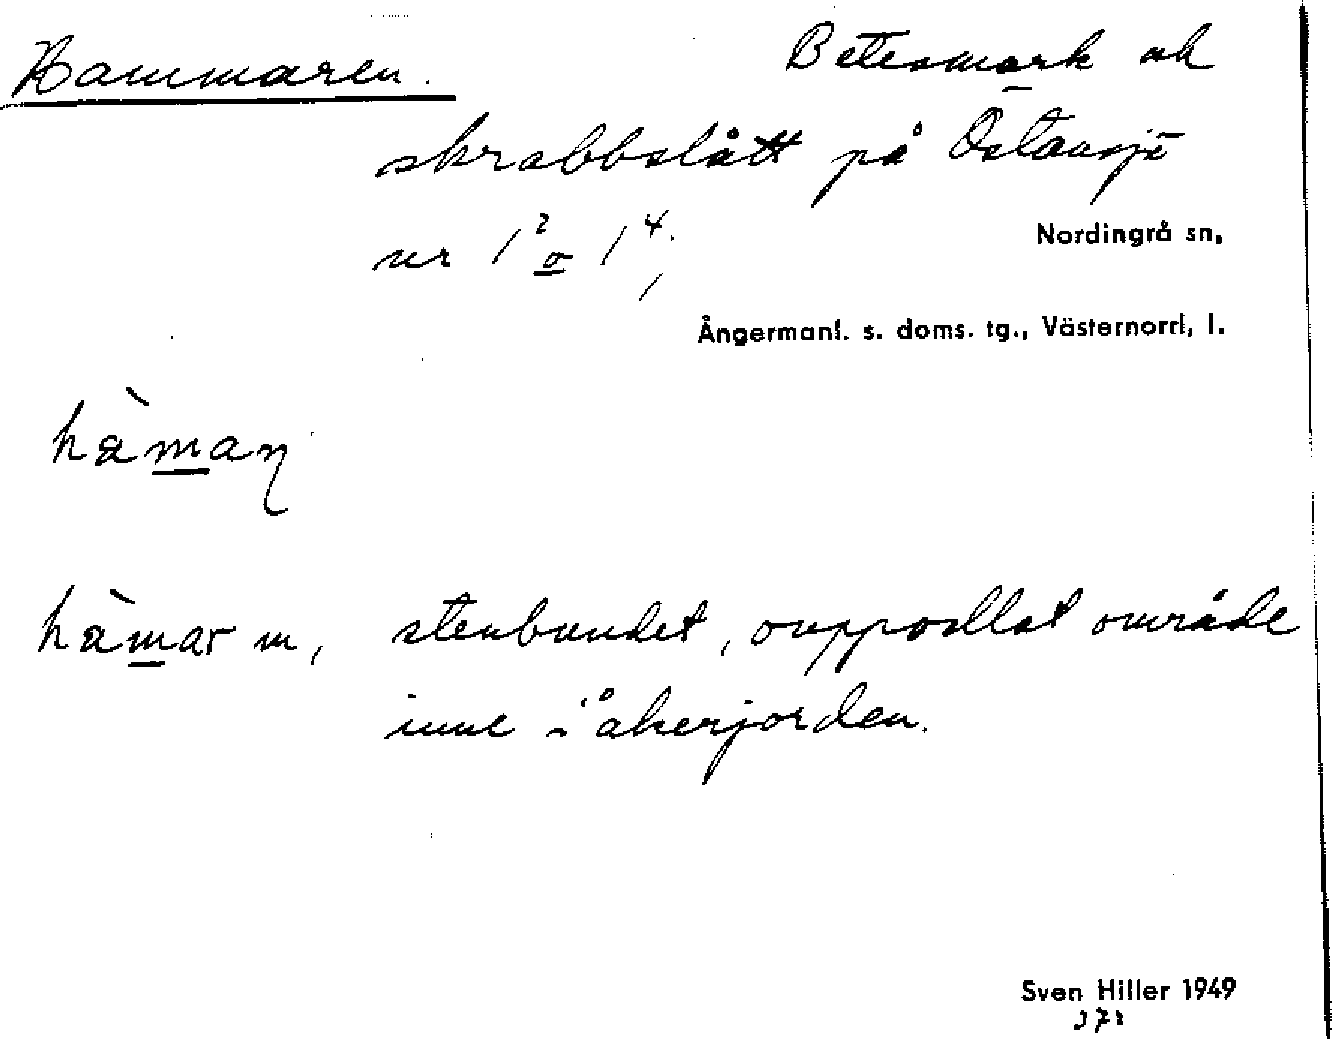 Hammaren. Betesmark och
skrabbslått på Östansjö
nr 1² o 1⁴;
Nordingrå sn,
Ångermanl. s. doms. tg., Västernorrl, l.
hàmaɳ
hàmar m, stenbundet, ouppodlat område
inne i åkerjorden.
Sven Hiller 1949